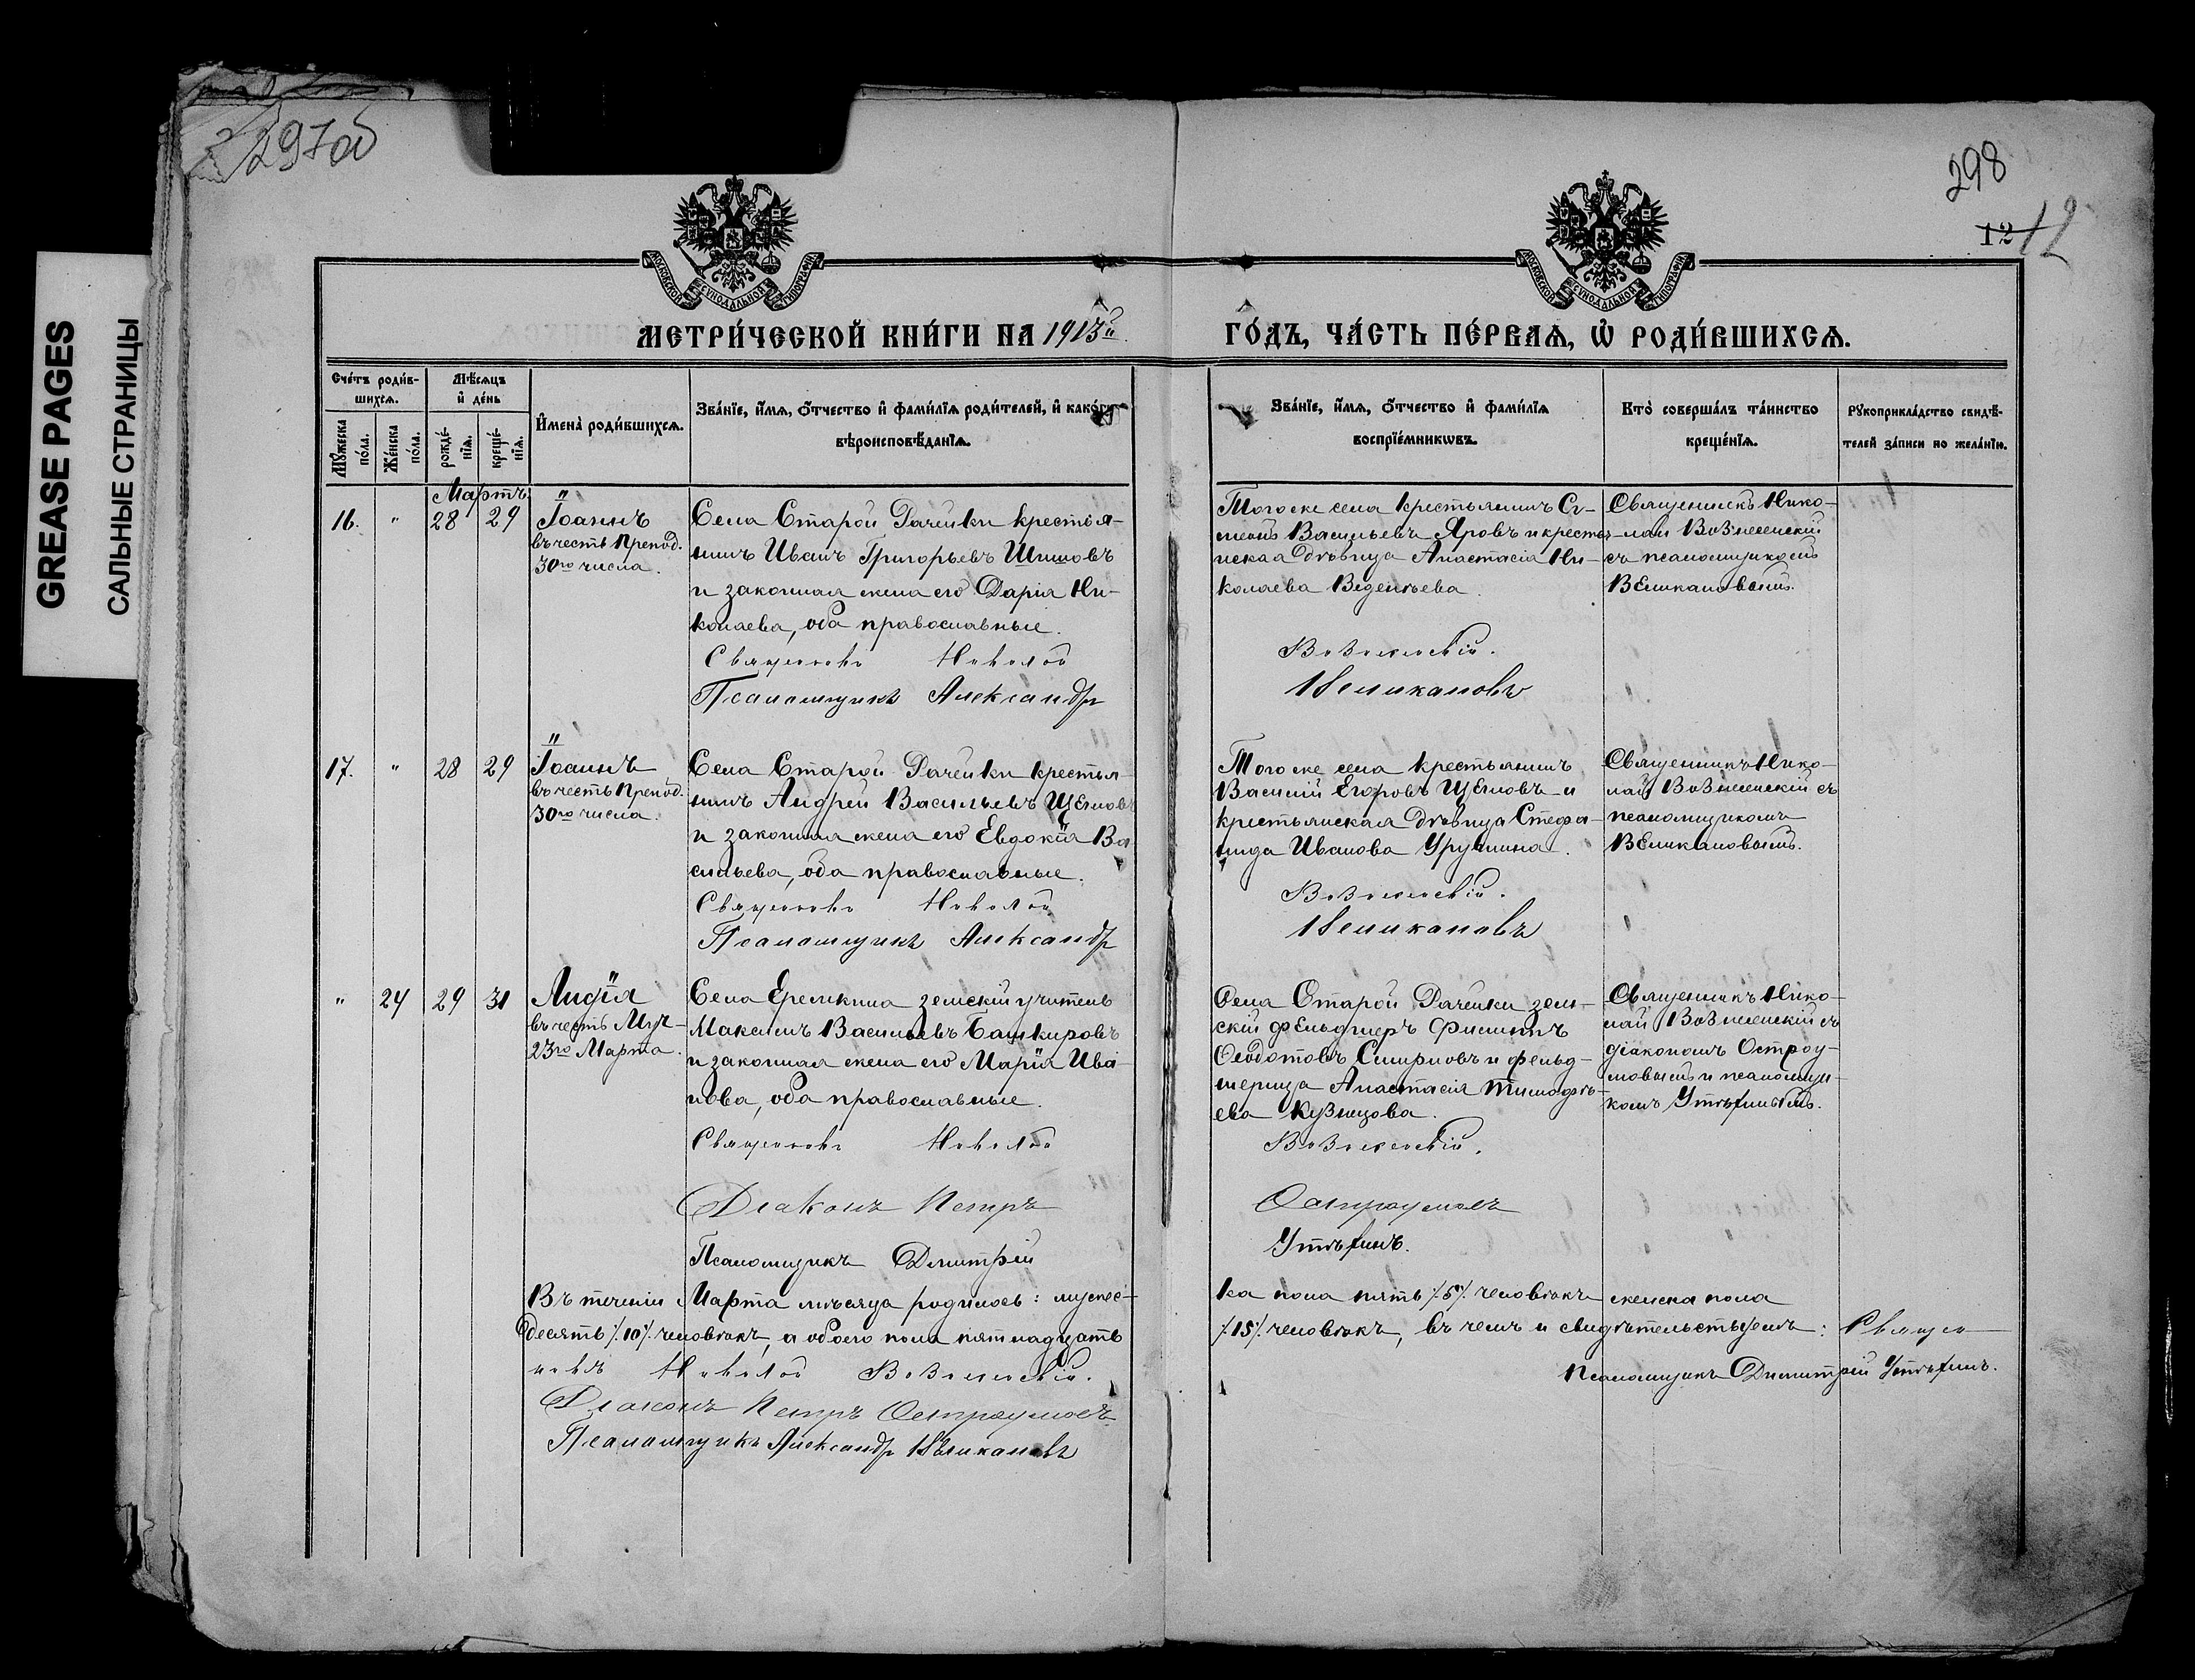 GREASE PAGES
САЛЬНЫЕ СТРАНИЦЫ
297об
298
12 12
МОСКОВСКОЙ СѴНОДАЛЬНОЙ ТИПОГРАФІИ
МОСКОВСКОЙ СѴНОДАЛЬНОЙ ТИПОГРАФІИ
МЕТРИ́ЧЕСКОЙ КНИ́ГИ НА 1913й
ГО́ДЪ, ЧА́СТЬ ПЕ́РВАѦ, Ѡ҆ РОДИ́ВШИХСѦ.
Сче́тъ роди́в-
шихсѧ.
Мѣ́сѧцъ
и҆ де́нь
Мꙋ́жеска по́ла.
Же́нска по́ла.
рожде́-
нїѧ.
креще́-
нїѧ.
И҆мена̀ роди́вшихсѧ.
Зва́нїе, и҆́мѧ, ѻ҆́тчество и҆ фами́лїѧ роди́телей, и҆ како́гѡ
вѣроисповѣ́данїѧ.
Зва́нїе, и҆́мѧ, ѻ҆́тчество и҆ фами́лїѧ
воспрїе́мникѡвъ.
Кто̀ соверша́лъ та́инство
креще́нїѧ.
Рꙋкоприкла́дство свидѣ́-
телей за́писи по жела́нїю.
Мартъ
16. " 28 29
Іоаннъ
въ честь Препод.
30го числа.
Села Старой Рачейки крестья-
нинъ Иванъ Григорьевъ Шишовъ
и законная жена его Дарія Ни-
колаева, оба православные.
Священникъ Николай
Псаломщикъ Александр
Тогоже села крестьянинъ Си-
меонъ Васильевъ Яровъ и крестья-
нская дѣвица Анастасія Ни-
колаева Веденѣева.
Вознесенскій.
Великановъ
Священникъ Нико-
лай Вознесенскій
съ псаломщикомъ
Великановымъ.
17. " 28 29
Іоаннъ
въ честь Препод.
30го числа.
Села Старой Рачейки крестья-
нинъ Андрей Васильевъ Щегловъ
и законная жена его Евдокія Ва-
сильева, оба православные.
Священникъ Николай
Псаломщикъ Александр
Тогоже села крестьянинъ
Василій Егоровъ Щегловъ и
крестьянская дѣвица Стефа-
нида Иванова
Вознесенскій.
Великановъ
Священникъ Нико-
лай Вознесенскій съ
псаломщикомъ
Великановымъ.
" 24 29 31
Лидія
въ честь Муч-
23го Марта.
Села Еремкина земскій учитель
Максимъ Васильевъ Башкировъ
и законная жена его Марія Ива-
нова, оба православные.
Священникъ Николай
Діаконъ Петръ
Псаломщикъ Димитрій
Села Старой Рачейки зем-
скій фельдшеръ Филиппъ
Ѳеодотовъ Смирновъ и фельд-
шерица Анастасія Тимофѣ-
ева Кузнецова.
Вознесенскій.
Остроумовъ
Утѣхинъ.
Священникъ Нико-
лай Вознесенскій съ
діакономъ Остроу-
мовымъ и псаломщи-
комъ Утѣхинымъ.
Въ теченіи Марта мѣсяца родилось: мужес-
ка пола пять /.5./ человѣкъ женска пола
десять /.10./ человѣкъ, а обоего пола пятнадцать
/.15./ человѣкъ, въ чемъ и свидѣтельствуемъ: Священ-
никъ Николай Вознесенскій.
Псаломщикъ Димитрій Утѣхинъ.
Діаконъ Петръ Остроумовъ
Псаломщикъ Александр Великановъ